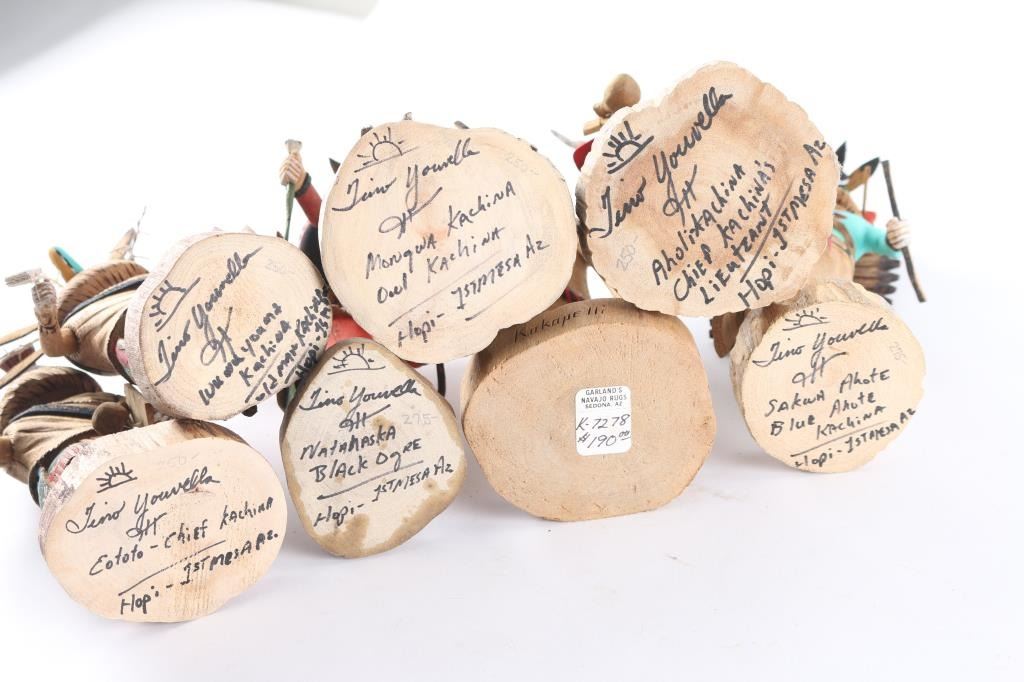 250-
Tino Youvella
Mongwa Kachina
Owl Kachina
Hopi - 1st Mesa Az
Tino Youvella
Aholi Kachina
Chief Kachina's
Lieutzant
Hopi - 1st Mesa Az
250-
Tino Youvella
Kachina
Hopi - 1st
Tino Youvella
275-
Natahaska
Black Ogre
1st Mesa Az
Hopi -
Kokopelli
GARLAND'S
NAVAJO RUGS
SEDONA, AZ
K-7278
$190.00
Tino Youvella
Sakwa Ahote
Blue Ahote
Kachina
Hopi - 1st Mesa Az
Tino Youvella
Eototo - Chief Kachina
Hopi - 1st Mesa Az.